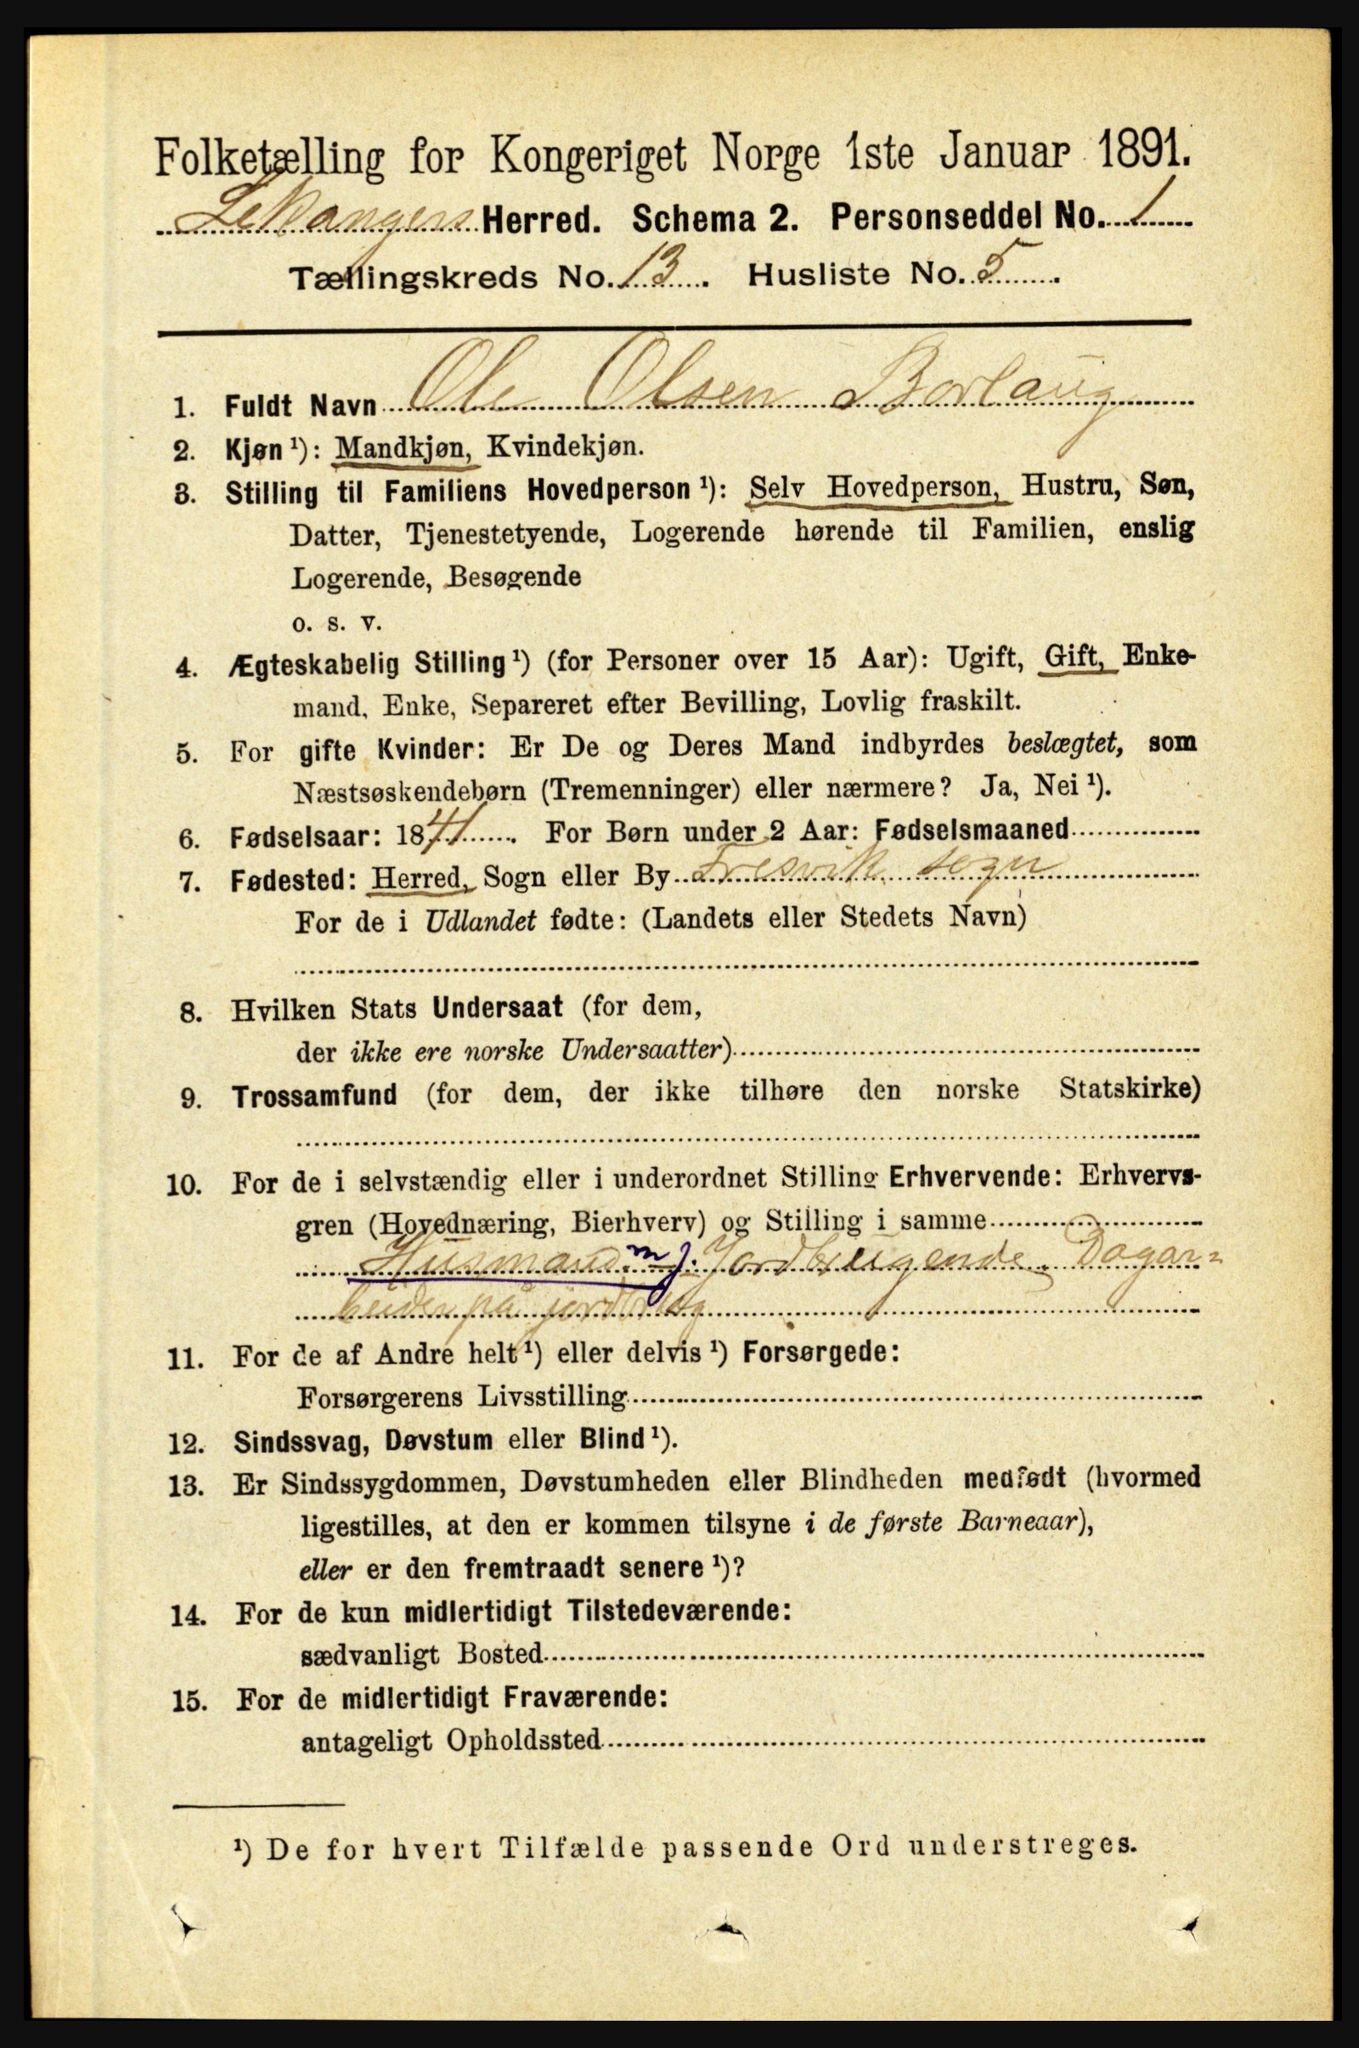 Folketælling for Kongeriget Norge 1ste Januar 1891.
Lekangers Herred. Schema 2. Personseddel No. 1
Tællingskreds No. 13. Husliste No. 5
1. Fuldt Navn Ole Olsen Borlaug
2. Kjøn ¹): Mandkjøn, Kvindekjøn.
3. Stilling til Familiens Hovedperson ¹): Selv Hovedperson, Hustru, Søn,
Datter, Tjenestetyende, Logerende hørende til Familien, enslig
Logerende, Besøgende
o. s. v.
4. Ægteskabelig Stilling ¹) (for Personer over 15 Aar): Ugift, Gift, Enke-
mand, Enke, Separeret efter Bevilling, Lovlig fraskilt.
5. For gifte Kvinder: Er De og Deres Mand indbyrdes beslægtet, som
Næstsøskendebørn (Tremenninger) eller nærmere? Ja, Nei ¹).
6. Fødselsaar: 1841. For Børn under 2 Aar: Fødselsmaaned
7. Fødested: Herred, Sogn eller By Fresvik sogn
For de i Udlandet fødte: (Landets eller Stedets Navn)
8. Hvilken Stats Undersaat (for dem,
der ikke ere norske Undersaatter)
9. Trossamfund (for dem, der ikke tilhøre den norske Statskirke)
10. For de i selvstændig eller i underordnet Stilling Erhvervende: Erhvervs-
gren (Hovednæring, Bierhverv) og Stilling i samme
Husmand m j. Jordbrugende. Dagar=
beider på jordbrug
11. For de af Andre helt ¹) eller delvis ¹) Forsørgede:
Forsørgerens Livsstilling
12. Sindssvag, Døvstum eller Blind ¹).
13. Er Sindssygdommen, Døvstumheden eller Blindheden medfødt (hvormed
ligestilles, at den er kommen tilsyne i de første Barneaar),
eller er den fremtraadt senere ¹)?
14. For de kun midlertidigt Tilstedeværende:
sædvanligt Bosted
15. For de midlertidigt Fraværende:
antageligt Opholdssted
¹) De for hvert Tilfælde passende Ord understreges.